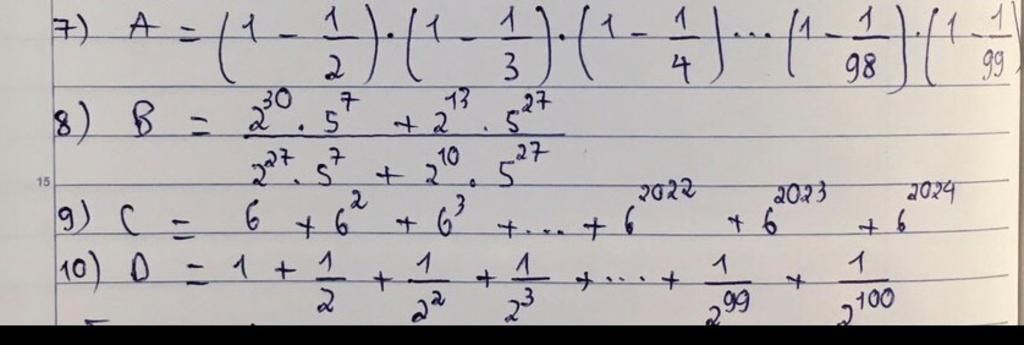 7) A = (1 - 1/2) · (1 - 1/3) · (1 - 1/4) ... (1 - 1/98) · (1 - 1/99)
8) B = (2^30 . 5^7 + 2^13 . 5^27) / (2^27 . 5^7 + 2^10 . 5^27)
15
9) C = 6 + 6^2 + 6^3 + ... + 6^2022 + 6^2023 + 6^2024
10) D = 1 + 1/2 + 1/2^2 + 1/2^3 + ... + 1/2^99 + 1/2^100